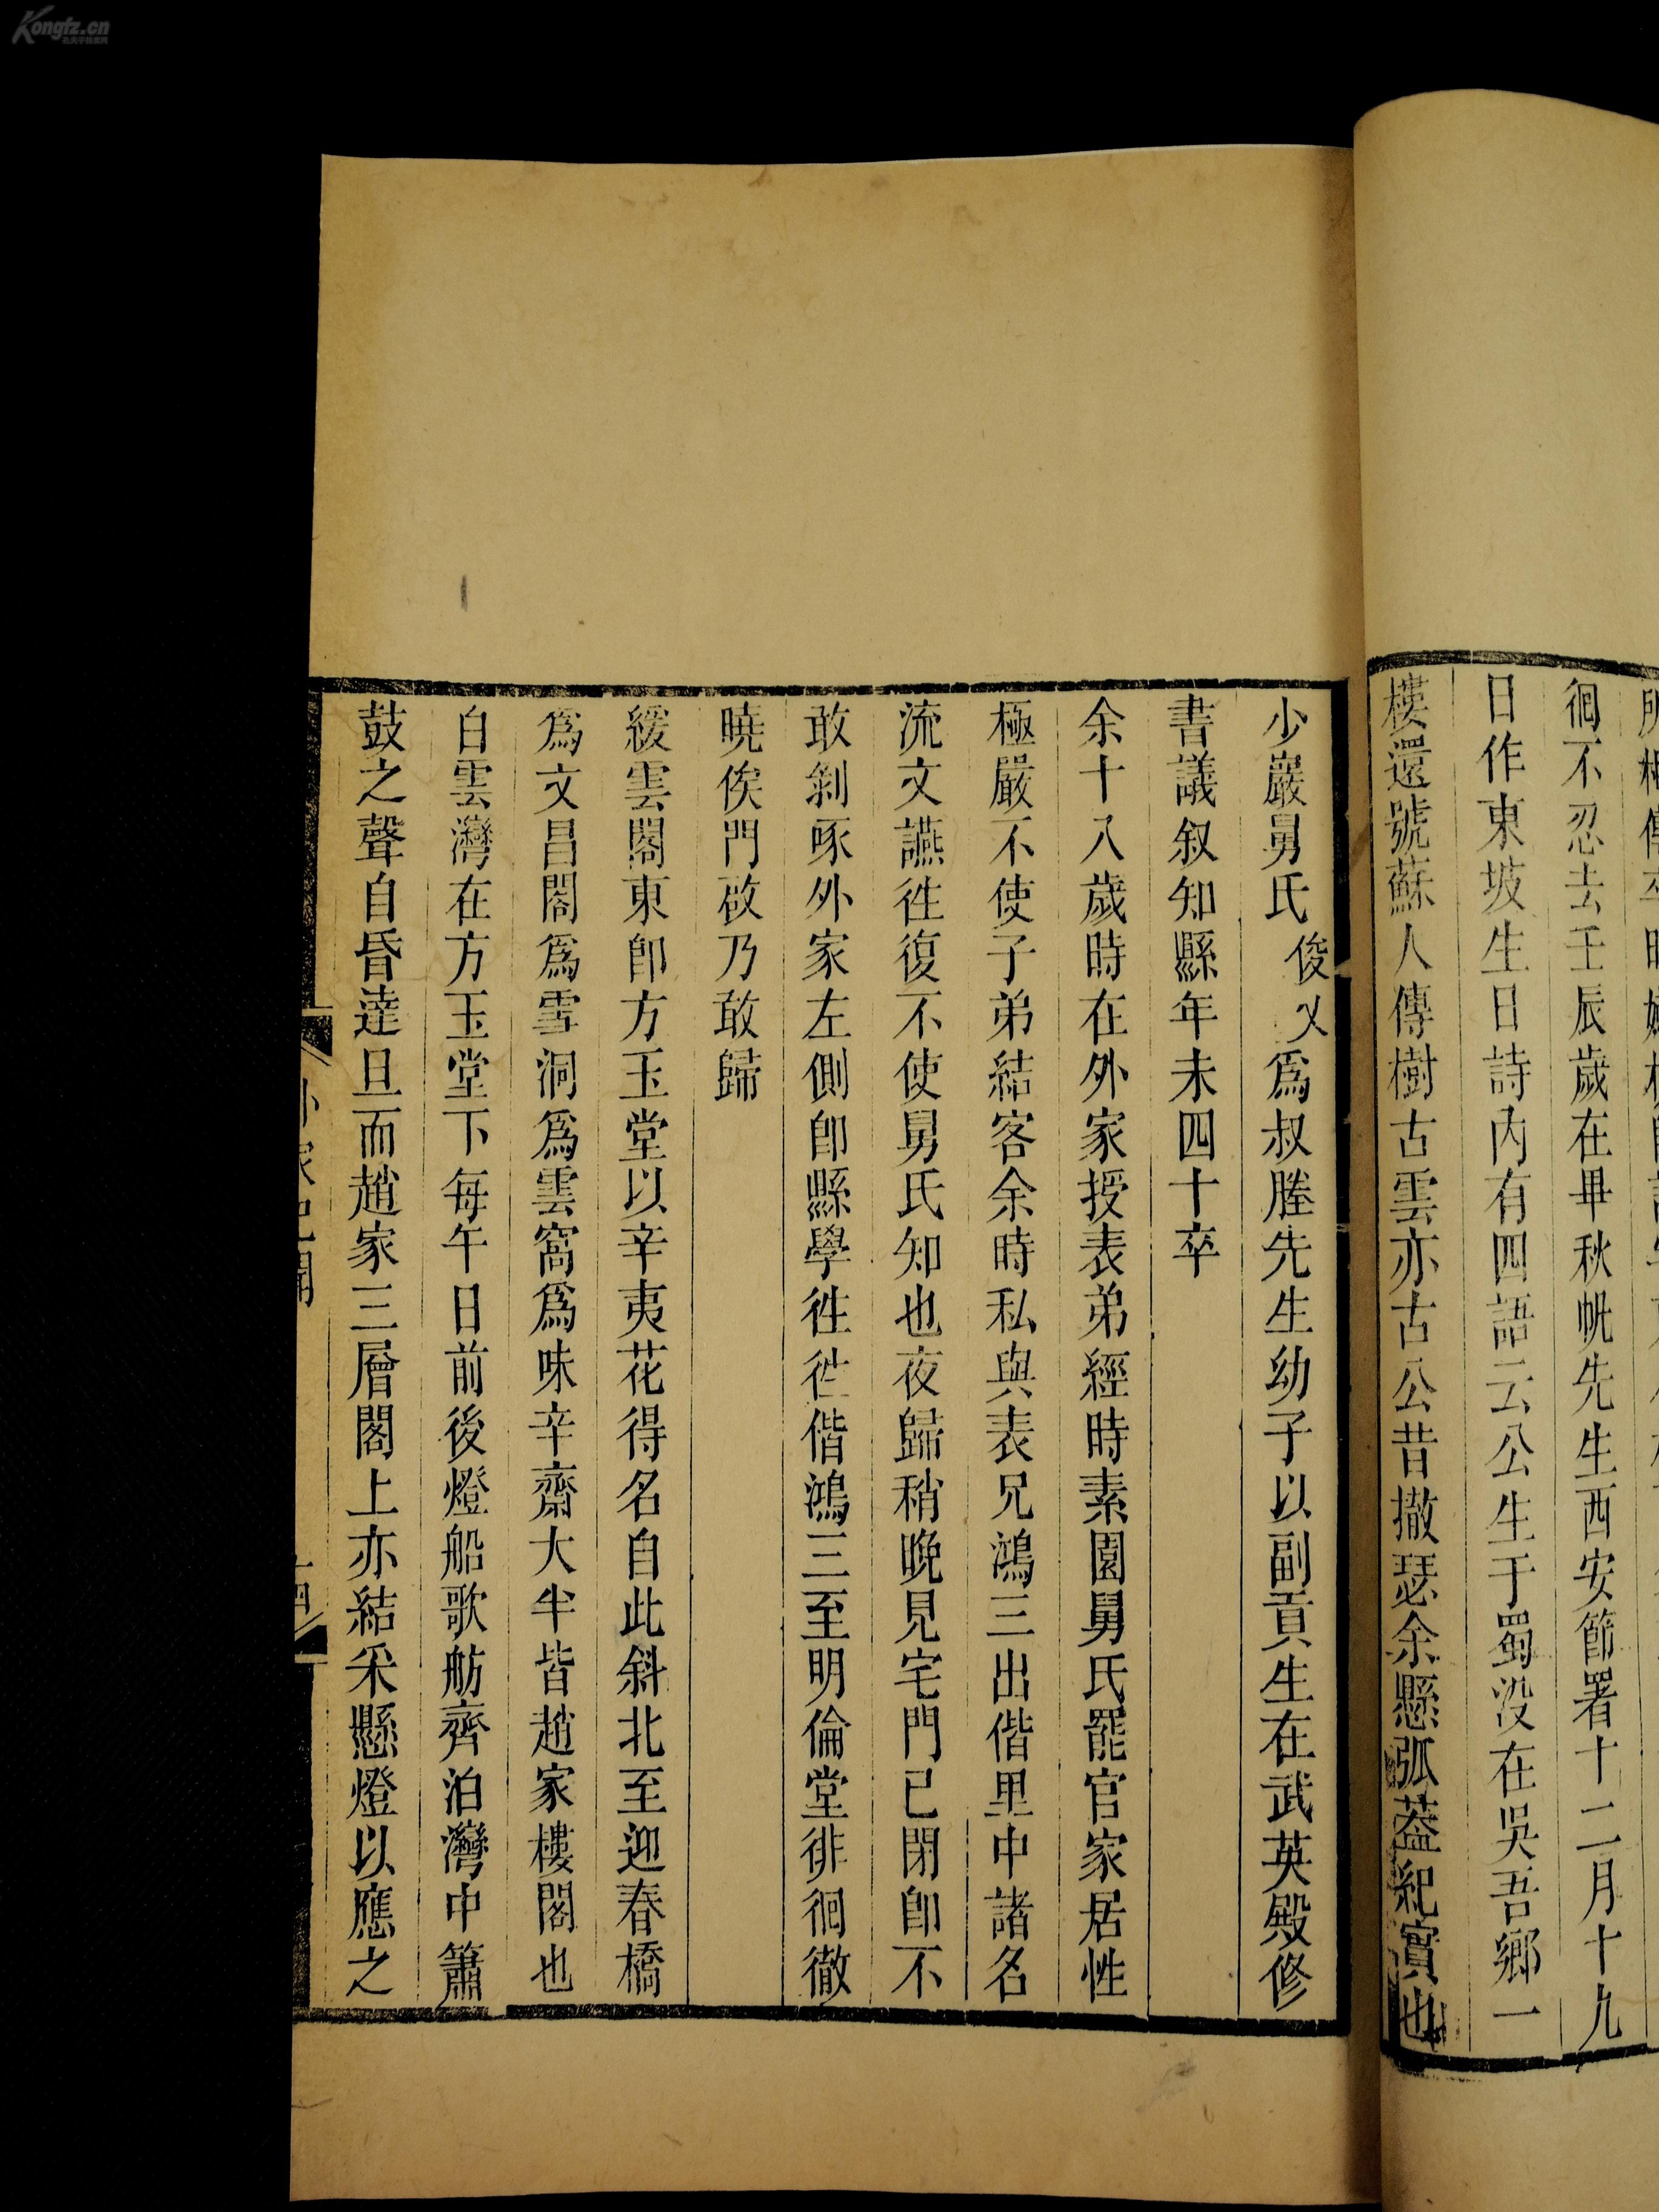 Kongfz.cn
徊不忍去壬辰歲在畢秋帆先生西安節署十二月十九
日作東坡生日詩內有四語云公生于蜀没在吳吾鄉一
樓還號蘇人傳樹古雲亦古公昔撤瑟余懸弧葢紀實也
少巖舅氏俊乂爲叔塍先生幼子以副貢生在武英殿修
書議叙知縣年未四十卒
余十八歲時在外家授表弟經時素園舅氏罷官家居性
極嚴不使子弟結客余時私與表兄鴻三出偕里中諸名
流文讌徃復不使舅氏知也夜歸稍晚見宅門已閉即不
敢剝啄外家左側即縣學徃徃偕鴻三至明倫堂徘徊徹
曉俟門啟乃敢歸
緩雲閣東即方玉堂以辛夷花得名自此斜北至迎春橋
爲文昌閣爲雪洞爲雲窩爲味辛齋大半皆趙家樓閣也
白雲灣在方玉堂下每午日前後燈船歌舫齊泊灣中簫
鼓之聲自昏達旦而趙家三層閣上亦結采懸燈以應之